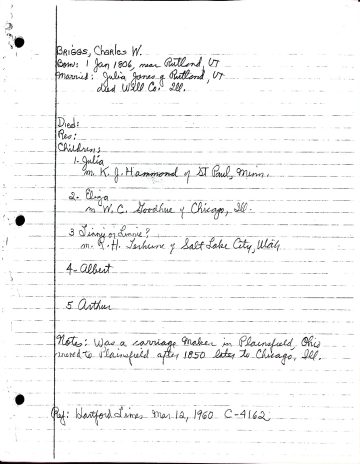 BRIGGS, Charles W.
Born: 1 Jan 1806, near Rutland, VT
Married: Julia Jones of Rutland, VT
Died Will Co. Ill.
Died:
Res:
Children:
1- Julia
m. K. J. Hammond of St Paul, Minn.
2- Eliza
m W. C. Goodhue of Chicago, Ill.
3 Linny or Linnie?
m. R. H. Terhune of Salt Lake City, Utah
4- Albert
5. Arthur
Notes: Was a carriage maker in Plainfield, Ohio
moved to Plainsfield after 1850 later to Chicago, Ill.
Ref: Hartford Times Mar 12, 1960 C-4162